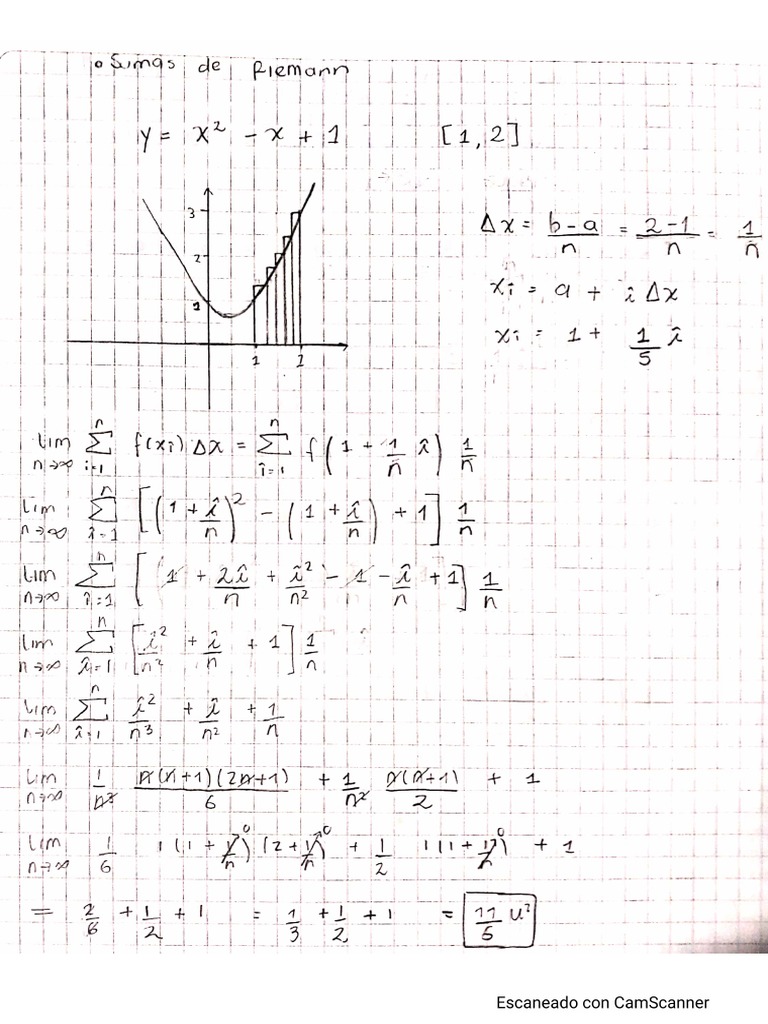 ∘ Sumas de Riemann
y = x² - x + 1 [1, 2]
3
2
1
1 2
Δx = b-a/n = 2-1/n = 1/n
xi = a + i Δx
xi = 1 + 1/5 i
lim n→∞ Σ i=1 n f(xi) Δx = Σ i=1 n f(1 + 1/n i) 1/n
lim n→∞ Σ i=1 n [(1 + i/n)² - (1 + i/n) + 1] 1/n
lim n→∞ Σ i=1 n [1 + 2i/n + i²/n² - 1 - i/n + 1] 1/n
lim n→∞ Σ i=1 n [i²/n² + i/n + 1] 1/n
lim n→∞ Σ i=1 n i²/n³ + i/n² + 1/n
lim n→∞ 1/n³ n(n+1)(2n+1)/6 + 1/n² n(n+1)/2 + 1
lim n→∞ 1/6 1(1 + 1/n)⁰ (2 + 1/n)⁰ + 1/2 1(1 + 1/n)⁰ + 1
= 2/6 + 1/2 + 1 = 1/3 + 1/2 + 1 = 11/6 u²
Escaneado con CamScanner